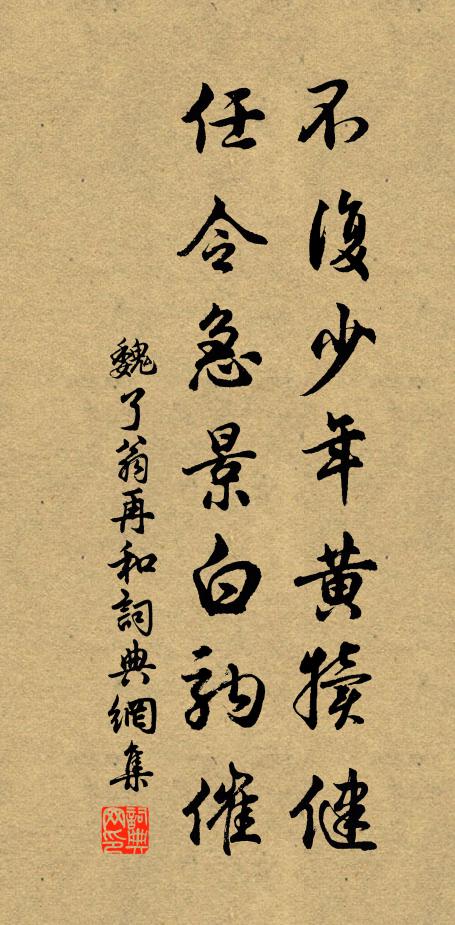 不復少年黃犢健
任令急景白駒催
魏了翁再和詞典網集
詞典網印